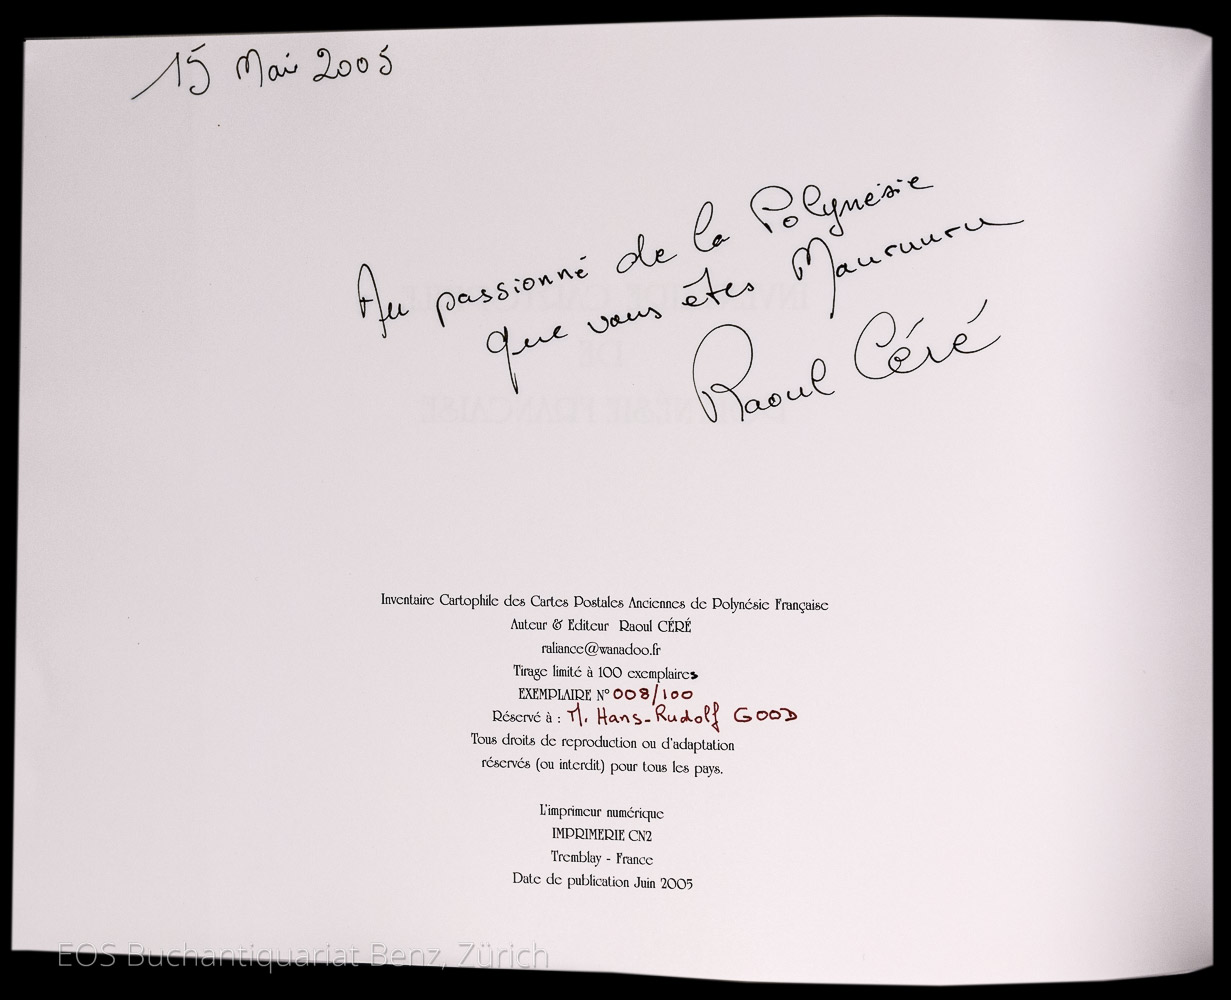 15 Mai 2005
Au passionné de la Polynésie
que vous êtes Mauruuru
Raoul Céré
Inventaire Cartophile des Cartes Postales Anciennes de Polynésie Française
Auteur & Editeur Raoul CÉRÉ
raliance@wanadoo.fr
Tirage limité à 100 exemplaires
EXEMPLAIRE N° 008/100
Réservé à : M. Hans-Rudolf GOOD
Tous droits de reproduction ou d'adaptation
réservés (ou interdit) pour tous les pays.
L'imprimeur numérique
IMPRIMERIE CN2
Tremblay - France
Date de publication Juin 2005
EOS Buchantiquariat Benz, Zürich